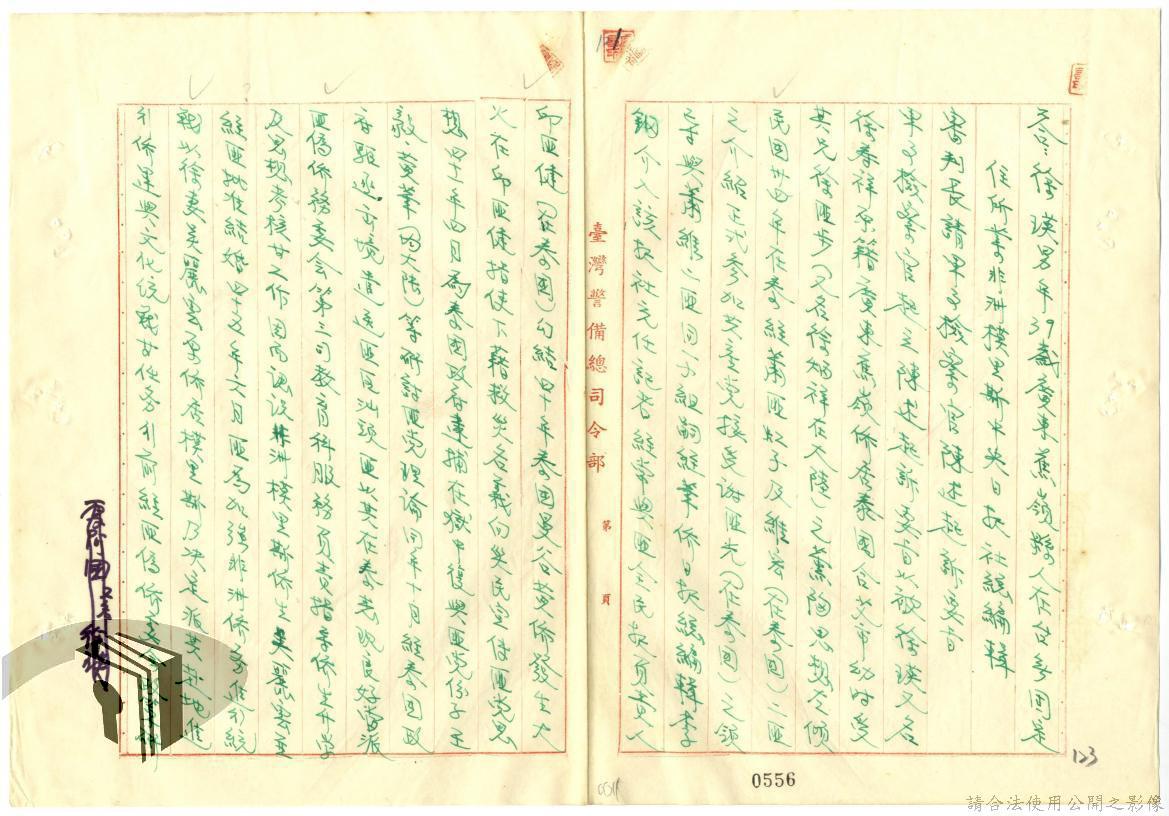 答：徐瑛男年39歲廣東蕉嶺縣人在台無固定
住所業非洲模里斯中央日報社總編輯
審判長請軍事檢察官陳述起訴要旨
軍事檢察官起立陳述起訴要旨以被徐瑛又名
徐春祥原籍廣東蕉嶺僑居泰國合艾市幼時受
其兄徐匪步（又名徐炳祥在大陸）之薰陶思想左傾
民國卅四年在泰經蕭匪
之介紹正式參加共產黨接受謝匪光（在泰國）之領
導與蕭維二匪同一小組嗣經華僑日報總編輯李
介入該報社充任記者經常與匪全民報負責人
邱匪健（在泰國）勾結四十年泰國曼谷黃橋發生大
火在邱匪健指使下藉救災名義向災民宣傳匪黨思
想四十一年四月為泰國政府逮捕在獄中復與匪黨份子王
毅、黃華（均大陸）等研討匪黨理論同年十月經泰國政
府驅逐出境遣送匪區汕頭匪以其在泰表現良好當派
匪偽僑務委會第三司教育科服務負責指導僑生升學
及思想考核等工作因而認識非洲模里斯僑生吳麗雲並
經匪批准結婚四十五年六月匪為加強非洲僑務進行統
戰以徐妻吳麗雲原僑居模里斯乃決定派其赴該地進
行僑運與文化統戰等任務行前經匪偽僑委會
臺灣警備總司令部
第 頁
0556
123
請合法使用公開之影像